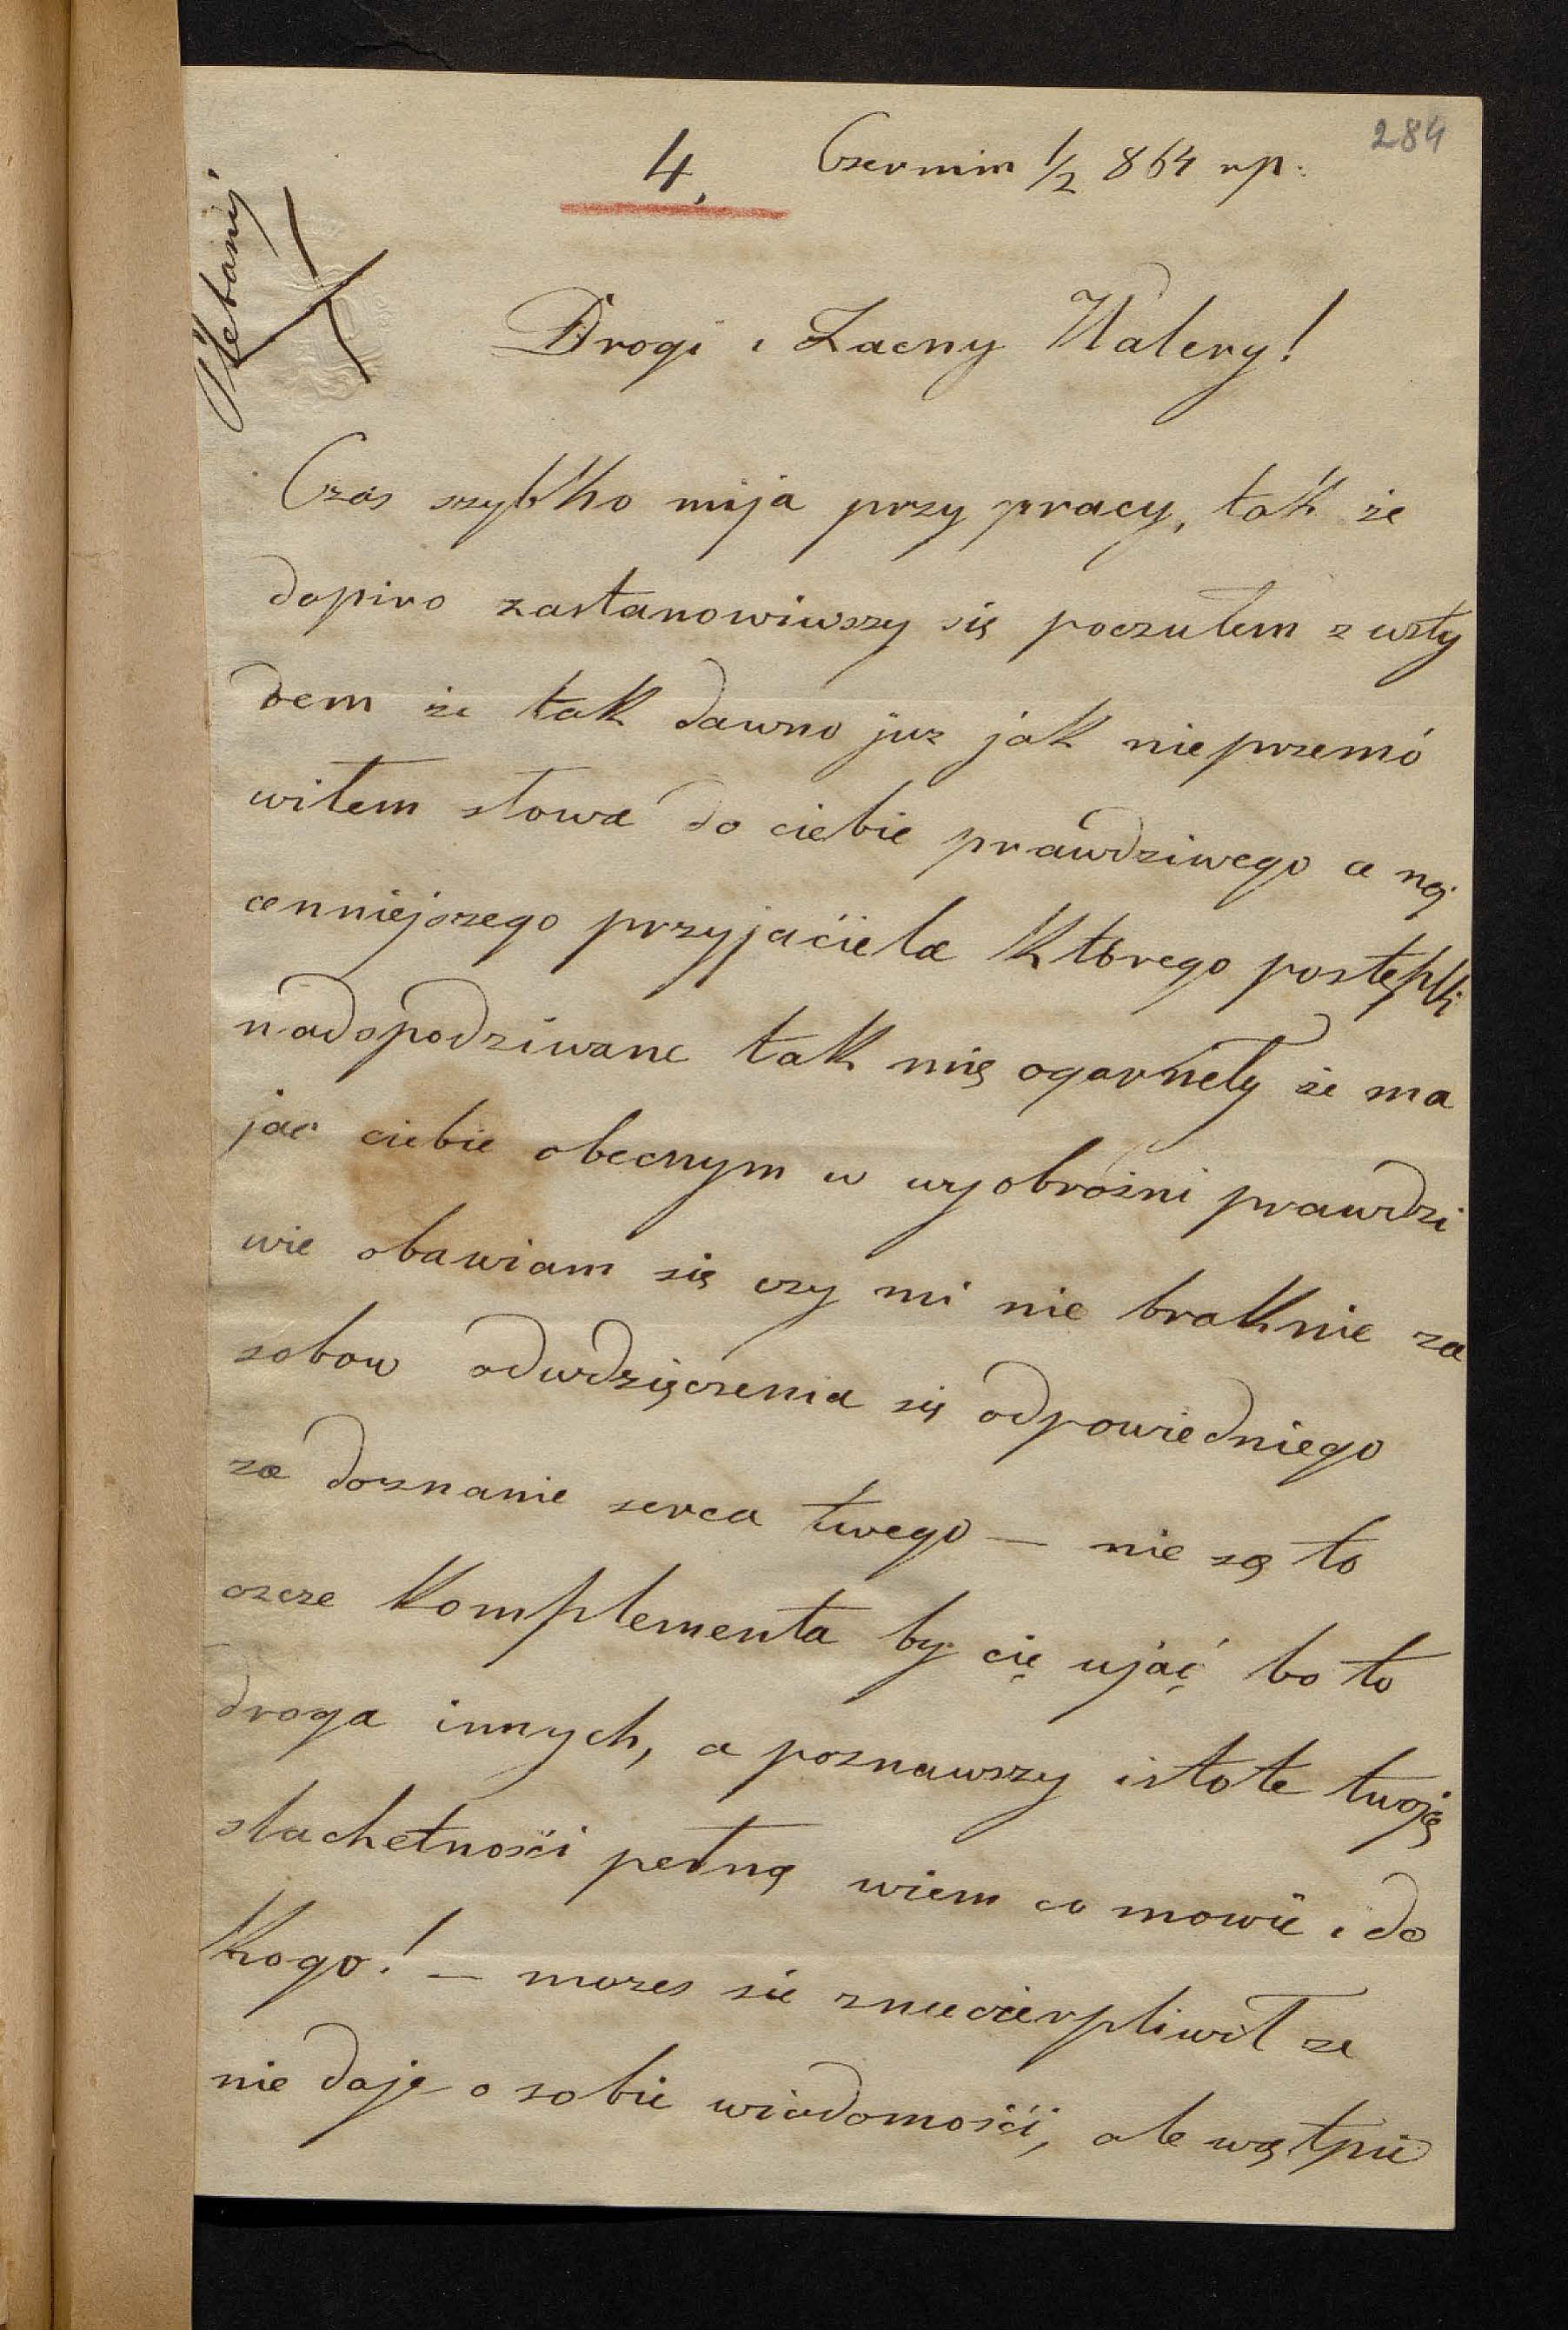 284
4, Czermin 1/2 864 rp:
Plebanij
Drogi i Zacny Walery!
Czas szybko mija przy pracy, tak że
dopiro zastanowiwszy się poczułem z wsty
dem że tak dawno juz jak nieprzemó
wiłem słowa do ciebie prawdziwego a naj
cenniejszego przyjaciela którego postępki
nadspodziwane tak mię ogarneły że ma
jac ciebie obecnym w wyobraźni prawdzi
wie obawiam się czy mi nie braknie za
sobow odwdzięczenia się odpowiedniego
za doznanie serca twego — nie są to
czcze komplementa by cię ująć bo to
droga innych, a poznawszy istote twoję
slachetności pełną wiem co mowie i do
kogo! — mozes sie zniecierpliwił ze
nie daję o sobie wiadomości, ale wątpie